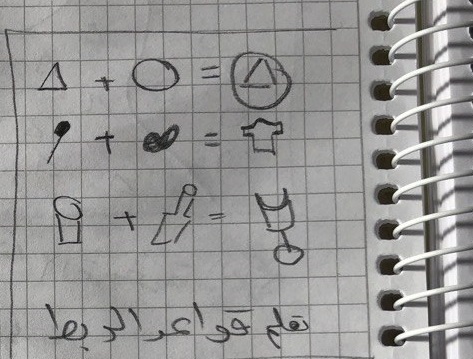 تعلم قواعد الربط